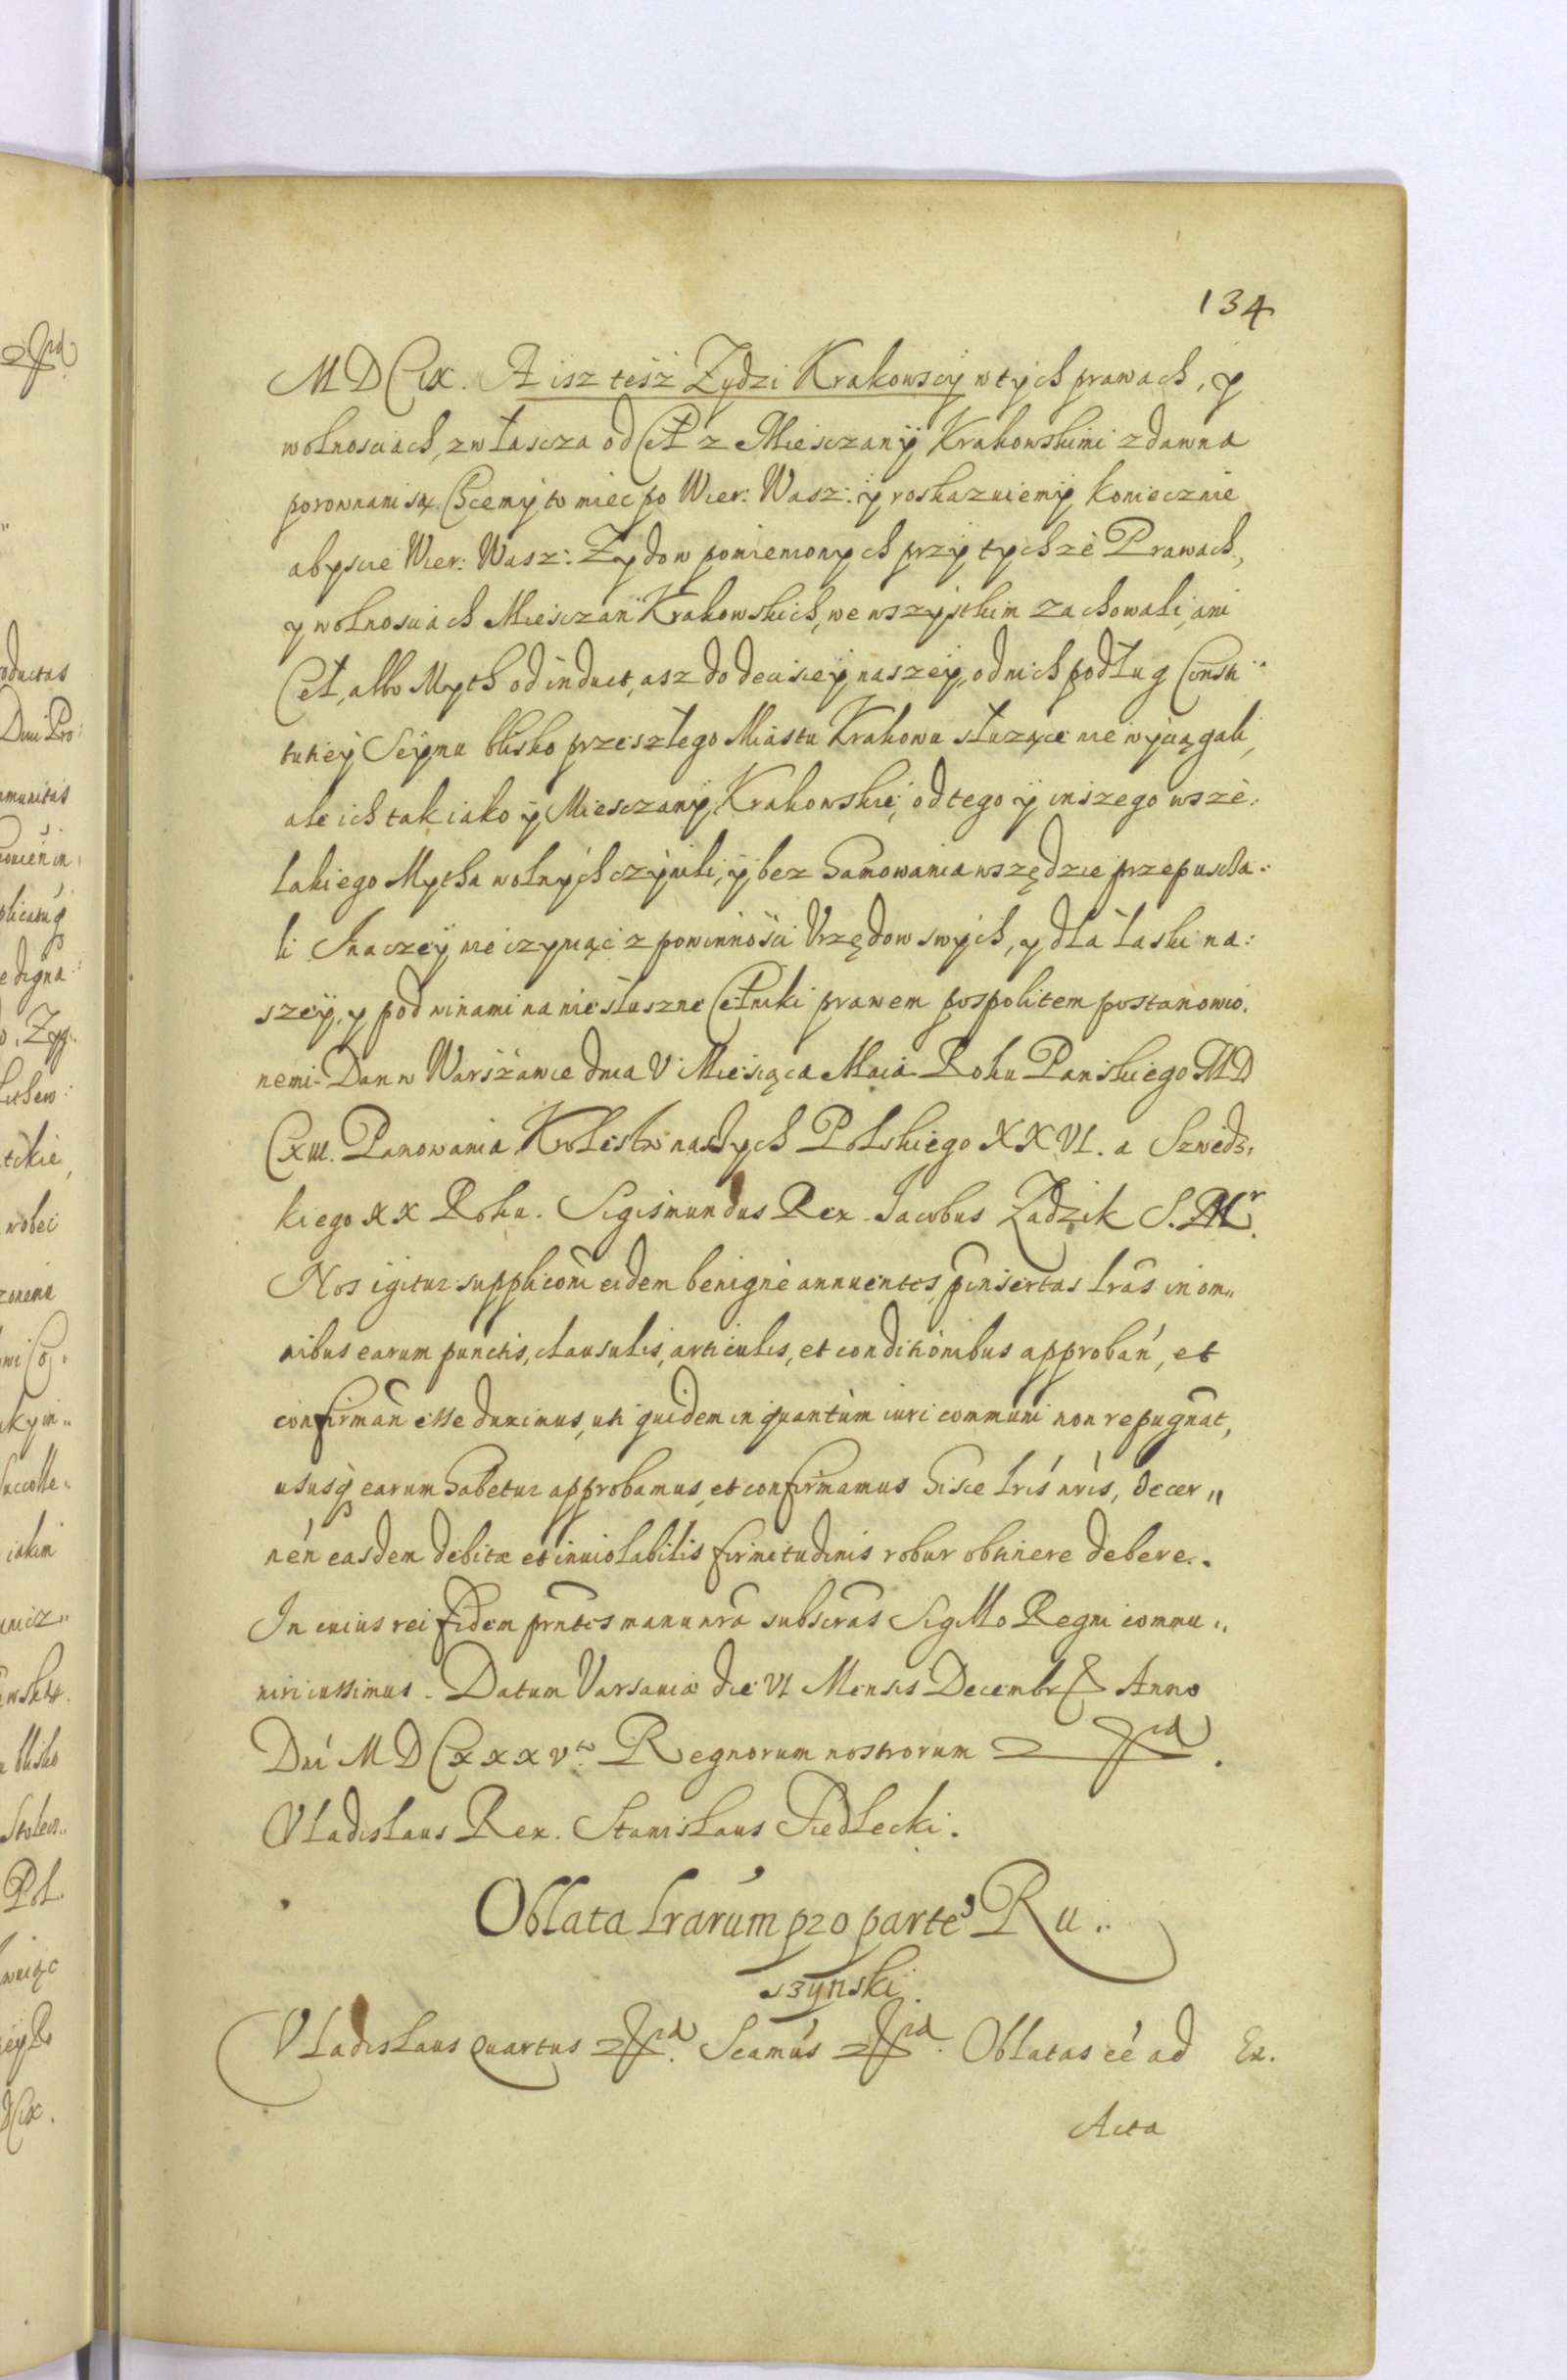 134
MDCIX. A isz tesz Zydzi Krakowscy w tych prawach, y
wolnosciach, zwłascza od Ceł z Miesczany Krakowskimi zdawna
porownani są. Chcemy to miec po Wier: Wasz: y roskazuiemy koniecznie
abyscie Wier: Wasz: Zydow pomienionych przy tychże Prawach,
y wolnosciach Miesczan Krakowskich, we wszystkim zachowali, ani
Ceł, albo Myth od induct, asz do decisiey naszey, od nich podług Consti„
tutiey Seymu blisko przeszłego Miastu Krakowu służące nie wyciągali,
ale ich tak iako y Miesczany Krakowskie, od tego y inszego wsze:
lakiego Mytha wolnych czynili, y bez hamowania wszędzie przepuscza:
li Inaczey nie czyniąc z powinnosci Vrzędow swych, y dla łaski na:
szey, y pod winami na niesłuszne Celniki prawem pospolitem postanowio.
nemi. Dan w Warszawie dnia V Miesiąca Maia Roku Panskiego MD
CXIII. Panowania Krolestw naszych Polskiego XXVI. a Szwedz:
kiego XX Roku. Sigismundus Rex. Iacobus Zadzik S. R Mr.
Nos igitur suppliconi eidem benignè annuentes, pinsertas lras in om„
nibus earum punctis, clausulis, articulis, et conditionibus approban, et
confirman esse duximus, uti quidem in quantùm iuri communi non repugnat,
ususq earum habetur approbamus, et confirmamus hisce lris nris, decer„
nen easdem debitæ et inviolabilis firmitudinis robur obtinere debere.
In cuius rei fidem pntes manu nra subscras Sigillo Regni commu„
niri iussimus. Datum Varsaviæ die VI Mensis Decembr Anno
Dni MDCXXXVto Regnorum nostrorum
Vladislaus Rex. Stanislaus Siedlecki.
Oblata lrarum pro parte Ru„
szynski.
Vladislaus quartus Scamus Oblatas ee ad Ex.
Acta